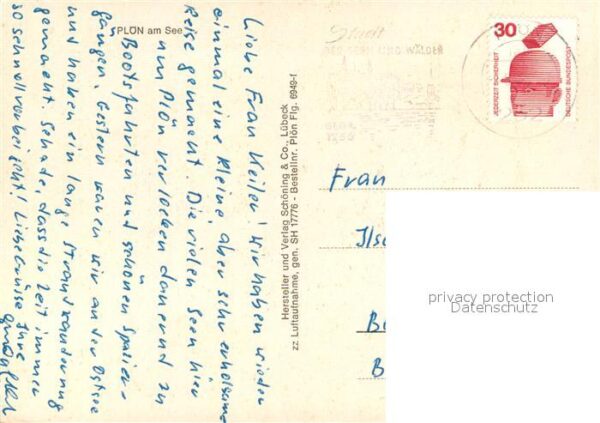 PLÖN am See
Liebe Frau Keiler! Wir haben wieder
einmal eine kleine aber sehr erholsame
Reise gemacht. Die vielen Seen hier
um Plön verlocken dauernd zu
Bootsfahrten und schönen Spazier-
gängen. Gestern waren wir an der Ostsee
und haben ein lange Strandwanderung
gemacht. Schade, dass die Zeit immer
so schnell vorbei geht! Liebe Grüsse Ihre
Hersteller und Verlag Schöning & Co., Lübeck
zz Luftaufnahme, gen. SH 17776 - Bestellnr. Plön Flg. 6949-f
Stadt
DER SEEN UND WÄLDER
30
JEDERZEIT SICHERHEIT
DEUTSCHE BUNDESPOST
Frau
Ilse
privacy protection
Datenschutz
B